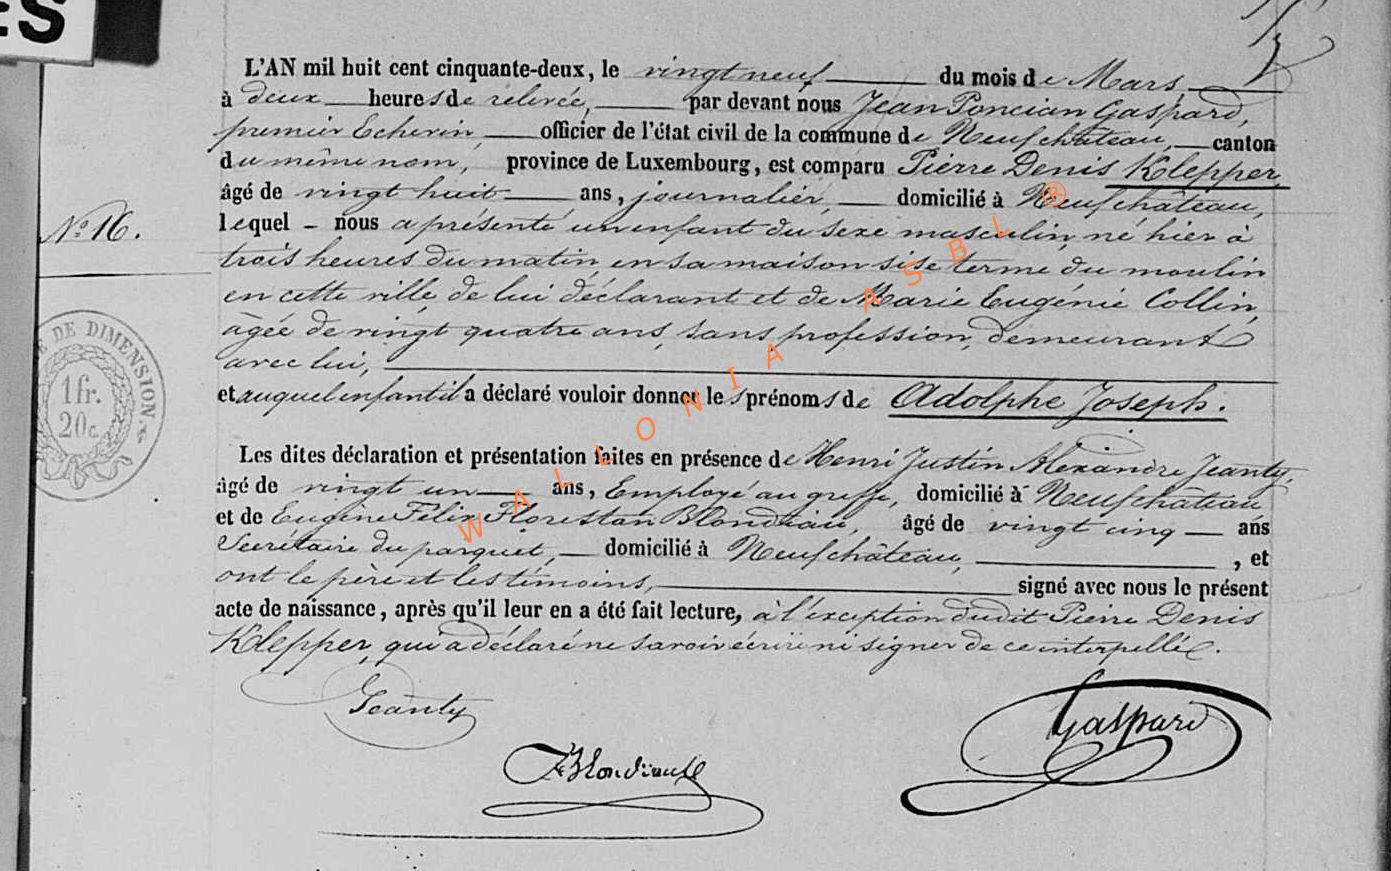 ES
L'AN mil huit cent cinquante-deux, le vingt neuf du mois de Mars
à deux heures de relevée, par devant nous Jean Poncian Gaspard,
premier Echevin, officier de l'état civil de la commune de Neufchâteau, canton
du même nom, province de Luxembourg, est comparu Pierre Denis Klepper,
âgé de vingt huit ans, journalier, domicilié à Neufchâteau,
N° 16.
lequel - nous a présenté un enfant du sexe masculin, né hier à
trois heures du matin en sa maison sise terme du moulin
en cette ville, de lui déclarant et de Marie Eugénie Collin,
âgée de vingt quatre ans, sans profession, demeurant
avec lui,
et auquel enfant il a déclaré vouloir donner les prénoms de Adolphe Joseph.
Les dites déclaration et présentation faites en présence de Henri Justin Alexandre Jeanty,
âgé de vingt un ans, Employé au greffe, domicilié à Neufchâteau
et de Eugène Félix Florestan Blondiau, âgé de vingt cinq ans
Secrétaire du parquet, domicilié à Neufchâteau, , et
ont le père et les témoins, signé avec nous le présent
acte de naissance, après qu'il leur en a été fait lecture, à l'exception dudit Pierre Denis
Klepper, qui a déclaré ne savoir écrire ni signer de ce interpellé.
Jeanty
Gaspard
DE DIMENSION
1 fr.
20 c.
WALLONIA ASBL ®